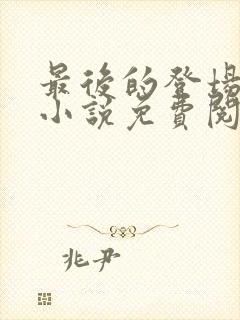 最後的登場
小說免費閱
兆尹